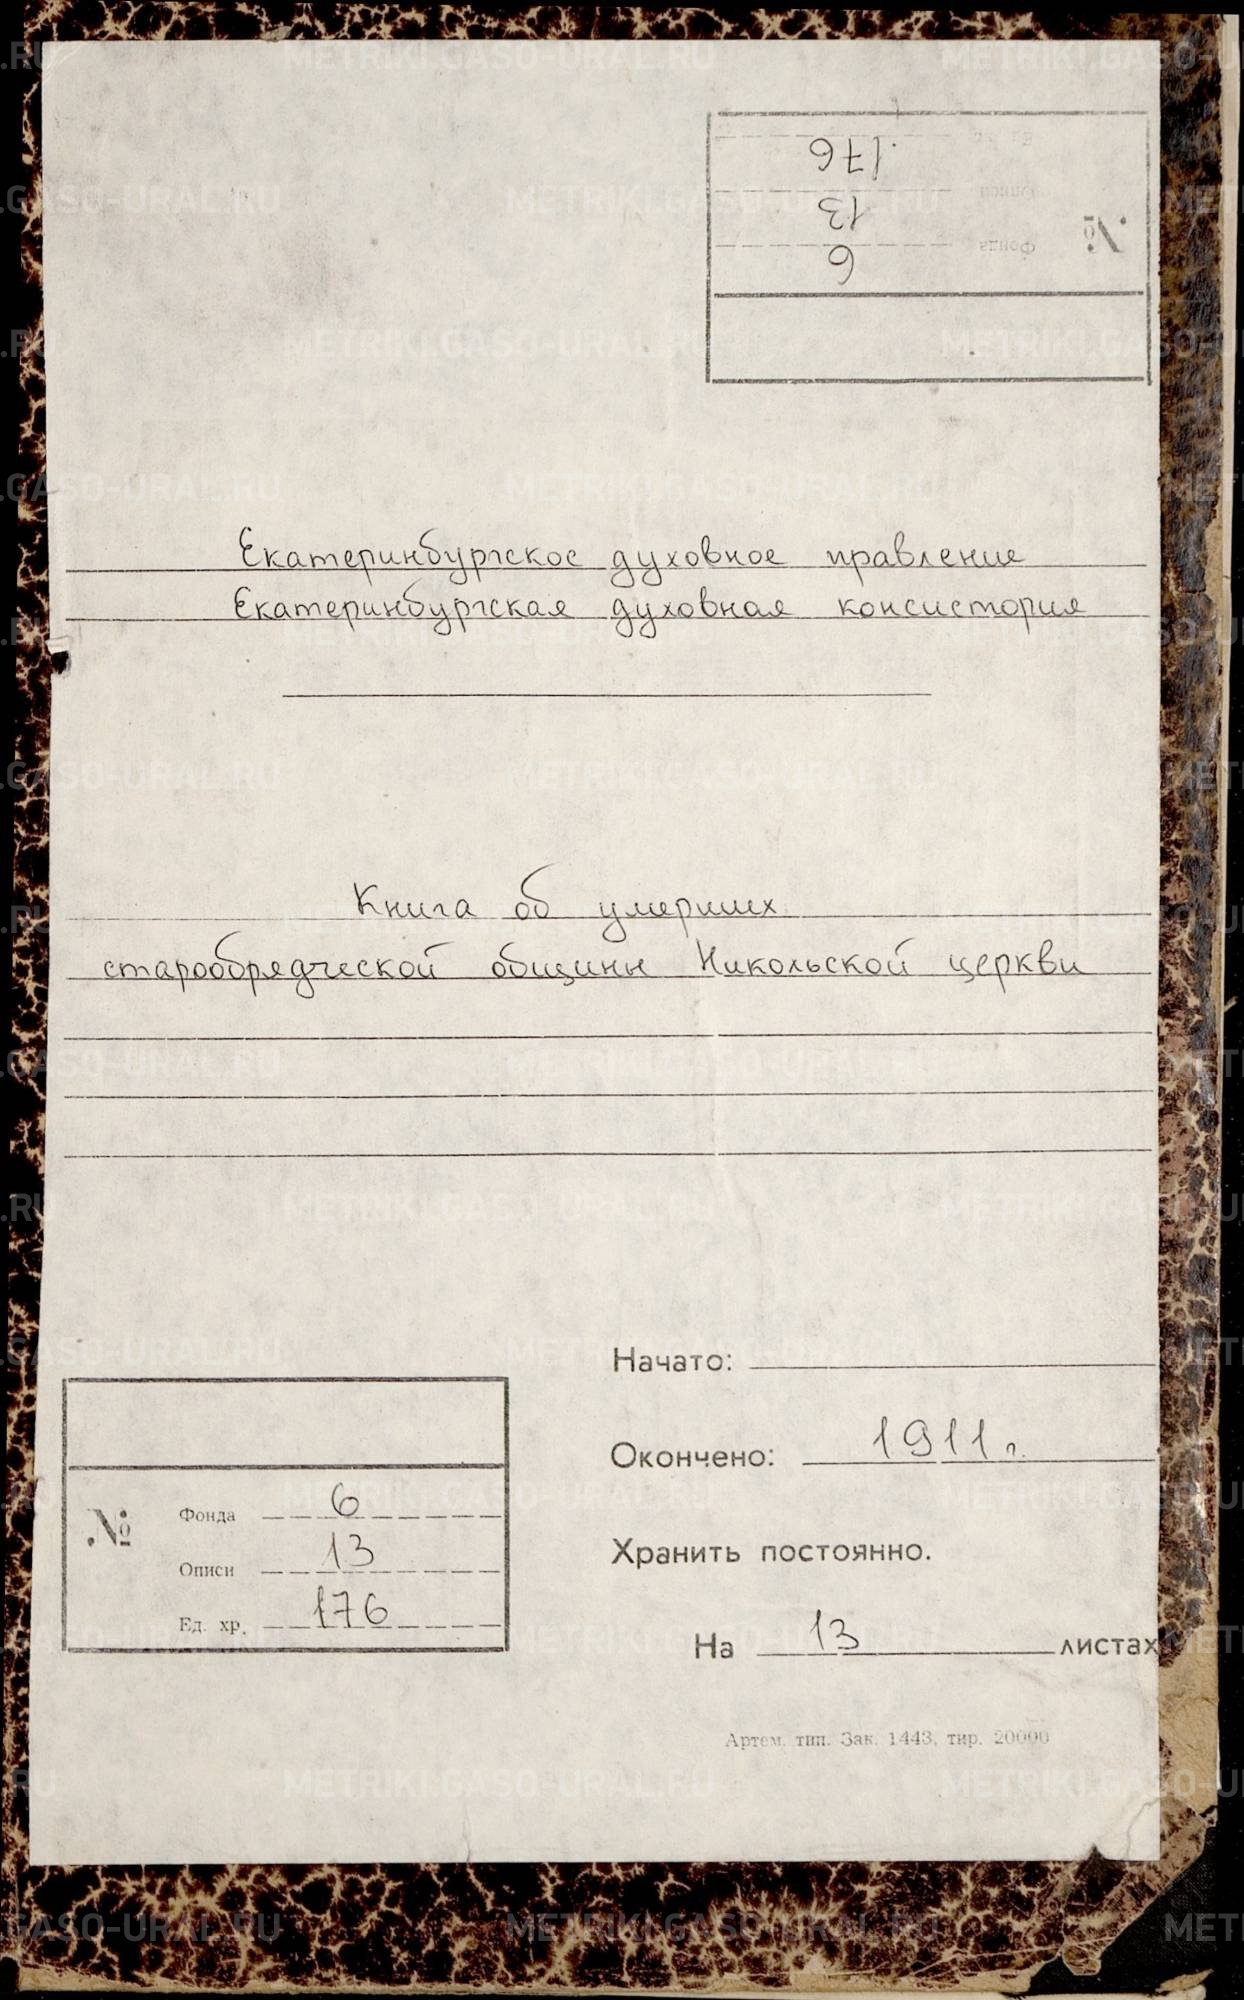 176
13
Фонда 6
№
Екатеринбургское духовное правление
Екатеринбургская духовная консистория
Книга об умерших
старообрядческой общины Никольской церкви
Начато:
Окончено: 1911 г.
Хранить постоянно.
На 13 листах
№
Фонда 6
Описи 13
Ед. хр. 176
Артем. тип. Зак. 1443, тир. 20000
METRIKI.GASO-URAL.RU